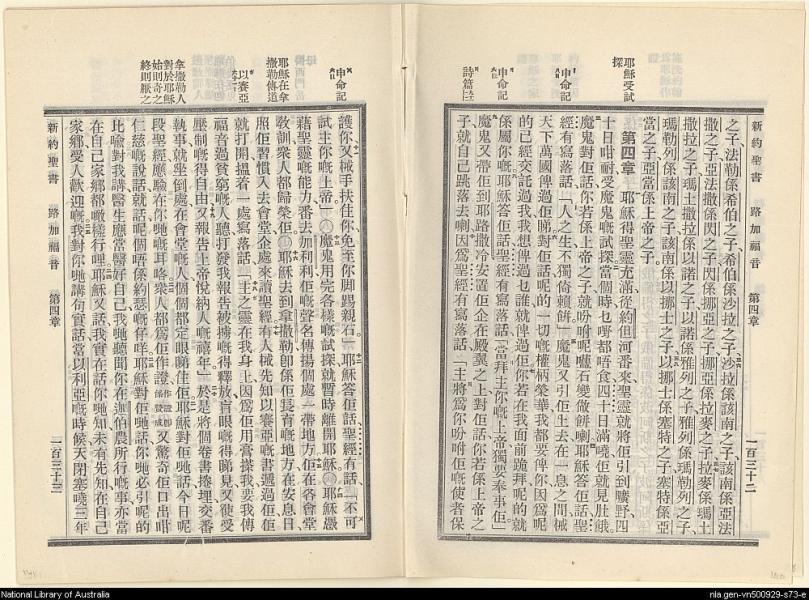 新約聖書 路加福音 第四章 一百三十二
之子法勒係希伯之子希伯係沙拉之子沙拉係該南之子該南係亞法
撒之子亞法撒係閃之子閃係挪亞之子挪亞係拉麥之子拉麥係瑪土
撒拉之子瑪土撒拉係以諾之子以諾係雅列之子雅列係瑪勒列之子
瑪勒列係該南之子該南係以挪士之子以挪士係塞特之子塞特係亞
當之子亞當係上帝之子
耶穌受試探
第四章 耶穌得聖靈充滿從約但河番來聖靈就將佢引到曠野四
十日咁耐受魔鬼嘅試探當個時乜嘢都唔食四十日滿曉佢就見肚餓
魔鬼對佢話你若係上帝之子就吩咐呢嚿石變做餅喇耶穌答佢話聖
申命記
經有寫落話「人之生不獨倚賴餅」魔鬼又引佢上去在一息之間械
天下萬國俾過佢睇對佢話呢的一切嘅權柄榮華我都要俾你因爲呢
的已經交託過我我想俾過乜誰就俾過佢你若在我面前跪拜呢的就
申命記
係屬你嘅耶穌答佢話聖經有寫落話「當拜主你嘅上帝獨要奉事佢」
魔鬼又帶佢到耶路撒冷安置佢企在殿翼之上對佢話你若係上帝之
詩篇
子就自己跳落去喇因爲聖經有寫落話「主將爲你吩咐佢嘅使者保
申命記
護你又械手扶住你免至你脚踢親石」耶穌答佢話聖經有話「不可
試主你嘅上帝」魔鬼用完各樣嘅試探就暫時離開耶穌 耶穌憑
耶穌在拿撒勒傳道
藉聖靈嘅能力番去加利利佢嘅聲名傳揚個處一帶地方佢在各會堂
教訓衆人都歸榮佢 耶穌去到拿撒勒卽係佢長育嘅地方在安息日
照佢習慣入去會堂企處來讀聖經有人械先知以賽亞嘅書遞過佢佢
以賽亞
就打開搵着一處寫落話「主之靈在我身上因爲佢用膏搽我要我傳
福音過貧窮嘅人聽打發我報告被擄嘅得釋放盲眼嘅得睇見又使受
壓制嘅得自由又報告上帝悅納人嘅禧年」於是將個卷書捲埋交番
執事就坐倒處在會堂嘅人個個都定眼睇住佢耶穌對佢哋話今日呢
拿撒勒人對於耶穌始則奇之終則厭之
段聖經應驗在你哋嘅耳咯衆人都爲佢作證又驚奇佢口出咁
仁慈嘅說話就話呢個唔係約瑟嘅仔咩耶穌對佢哋話你哋必引呢的
比喩對我講醫生應當醫好自己我哋聽聞你在迦伯農所行嘅事亦當
在自己家鄉都噉樣行哩耶穌又話我實在話你哋知未有先知在自己
家鄉受人歡迎嘅我對你哋講句實話當以利亞嘅時候天閉塞曉三年
新約聖書 路加福音 第四章 一百三十三
National Library of Australia
nla.gen-vn500929-s73-e